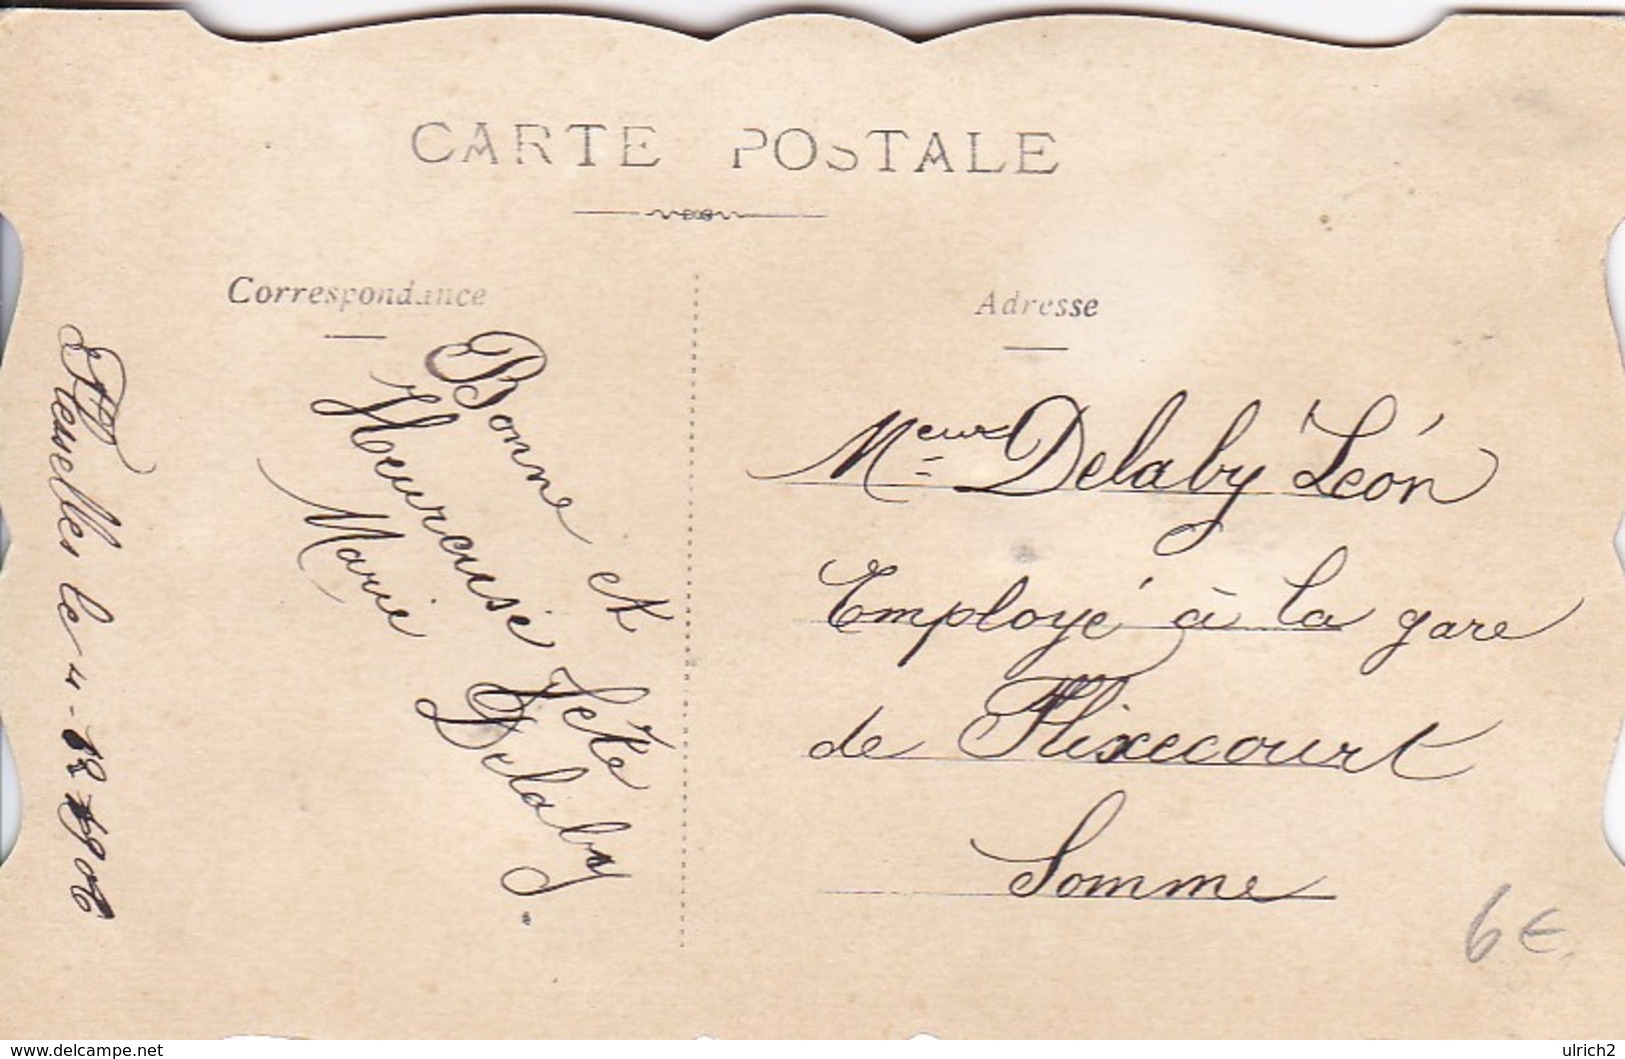 CARTE POSTALE
Correspondance
Adresse
Flesselles le 4-12 1906
Bonne et
Heureuse Fête
Marie Delaby.
Meur Delaby Léon
Employé à la gare
de Flixecourt
Somme
6€
www.delcampe.net
ulrich2